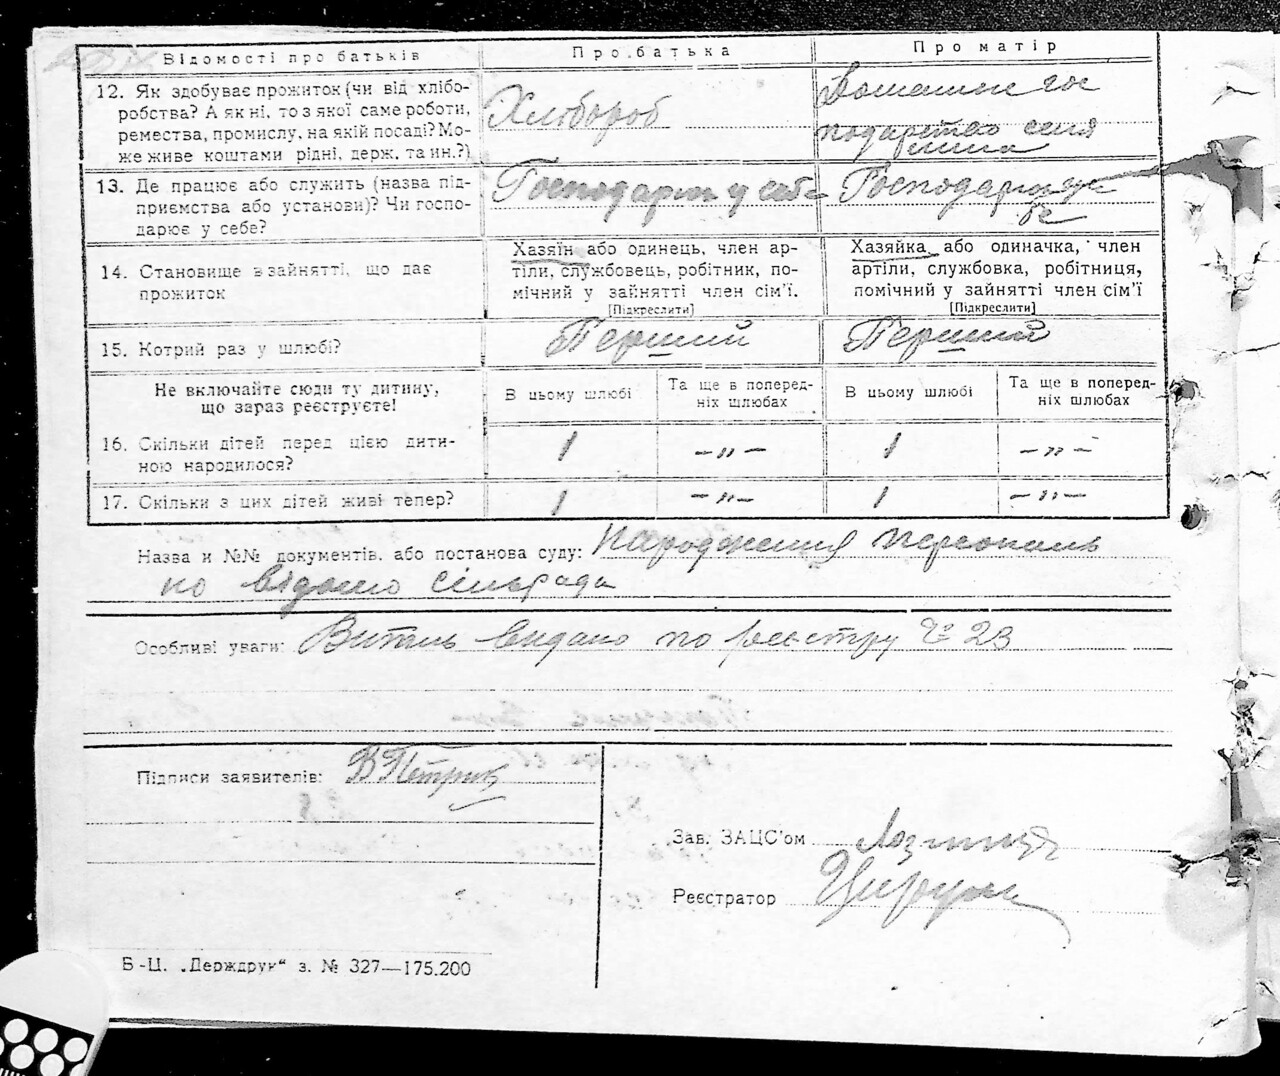 Відомості про батьків
Про батька
Про матір
12. Як здобуває прожиток (чи від хлібо-
робства? А як ні, то з якої саме роботи,
ремества, промислу, на якій посаді? Мо-
же живе коштами рідні, держ. та ин.?)
Хлібороб
Домашнє гос
подарство
13. Де працює або служить (назва під-
приємства або установи)? Чи госпо-
дарює у себе?
Господарит у себе
Господарит
14. Становище в зайнятті, що дає
прожиток
Хазяїн або одинець, член ар-
тіли, службовець, робітник, по-
мічний у зайнятті член сім'ї.
[Підкреслити]
Хазяйка або одиначка, член
артіли, службовка, робітниця,
помічний у зайнятті член сім'ї
[Підкреслити]
15. Котрий раз у шлюбі?
Перший
Перший
Не включайте сюди ту дитину,
що зараз реєструєте!
В цьому шлюбі
Та ще в поперед-
ніх шлюбах
В цьому шлюбі
Та ще в поперед-
ніх шлюбах
16. Скільки дітей перед цією дити-
ною народилося?
1
—„—
1
—„—
17. Скільки з цих дітей живі тепер?
1
—„—
1
—„—
Назва й №№ документів, або постанова суду: Народження персональ
но відомо сільрада
Особливі уваги: Витяг видано по реєстру № 23
Підписи заявителів: В Петрик
Зав. ЗАЦС'ом
Реєстратор
Б-Ц. „Держдрук“ з. № 327—175.200